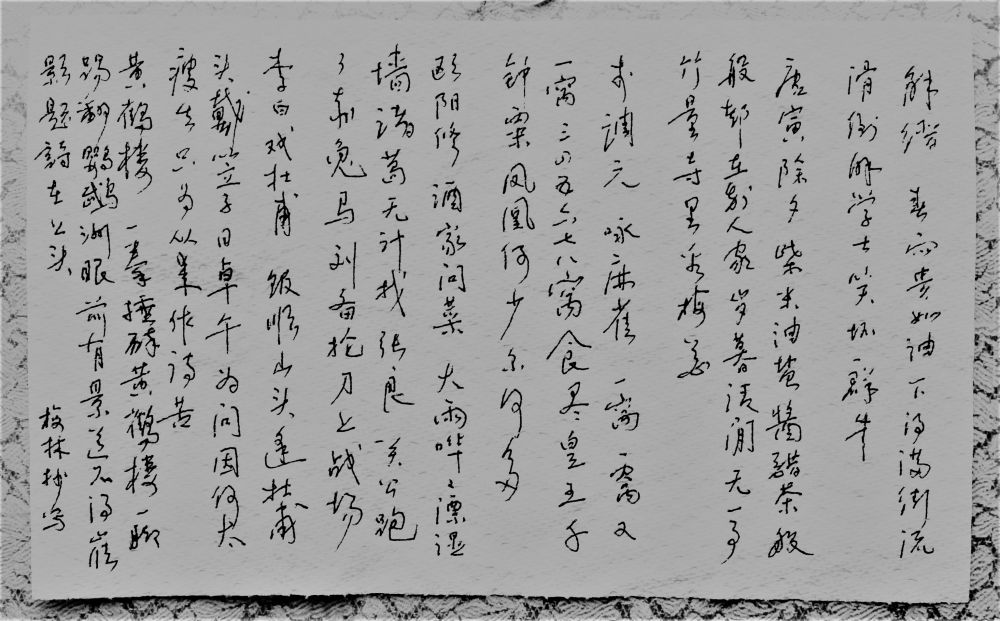 解缙 春雨贵如油 下得满街流
滑倒解学士 笑坏一群牛
唐寅 除夕 柴米油盐酱醋茶 般
般都在别人家 岁暮清闲无一事
竹堂寺里看梅花
李调元 咏麻雀 一窝一窝又
一窝 三四五六七八窝 食尽皇王千
钟粟 凤凰何少尔何多
欧阳修 酒家问菜 大雨哗哗漂湿
墙 诸葛无计找张良 关公跑
了赤兔马 刘备抡刀上战场
李白 戏杜甫 饭颗山头逢杜甫
头戴笠子日卓午 为问因何太
瘦生 只为从来作诗苦
黄鹤楼 一拳捶碎黄鹤楼 一脚
踢翻鹦鹉洲 眼前有景道不得 崔
颢题诗在上头
梅林抄写